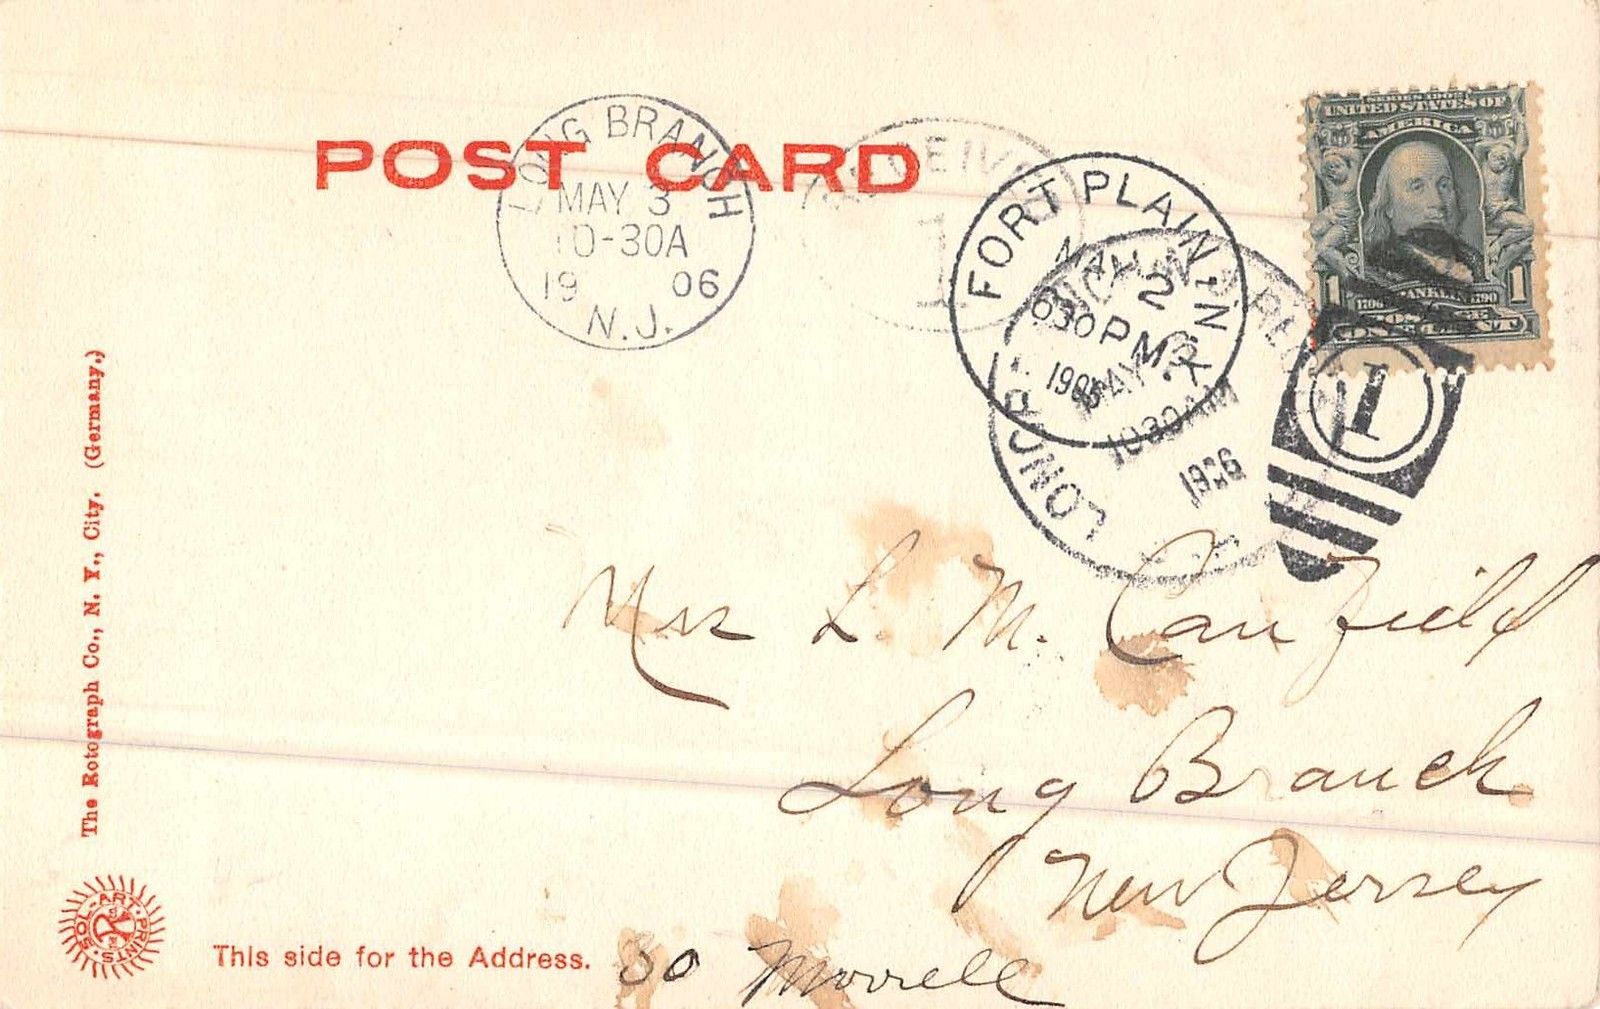 POST CARD
LONG BRANCH
MAY 3
10-30A
19 06
N.J.
RECEIVED
1
FORT PLAIN N.Y.
MAY 2
630 PM
1906
LONG BRANCH
MAY 3
1030 AM
1906
1
SERIES 1902
UNITED STATES OF
AMERICA
1 1
1706 FRANKLIN 1790
POSTAGE
ONE CENT
Mrs L. M. Canfield
Long Branch
New Jersey
30 Morrell
The Rotograph Co., N. Y., City. (Germany.)
SOL-ART PRINTS
This side for the Address.